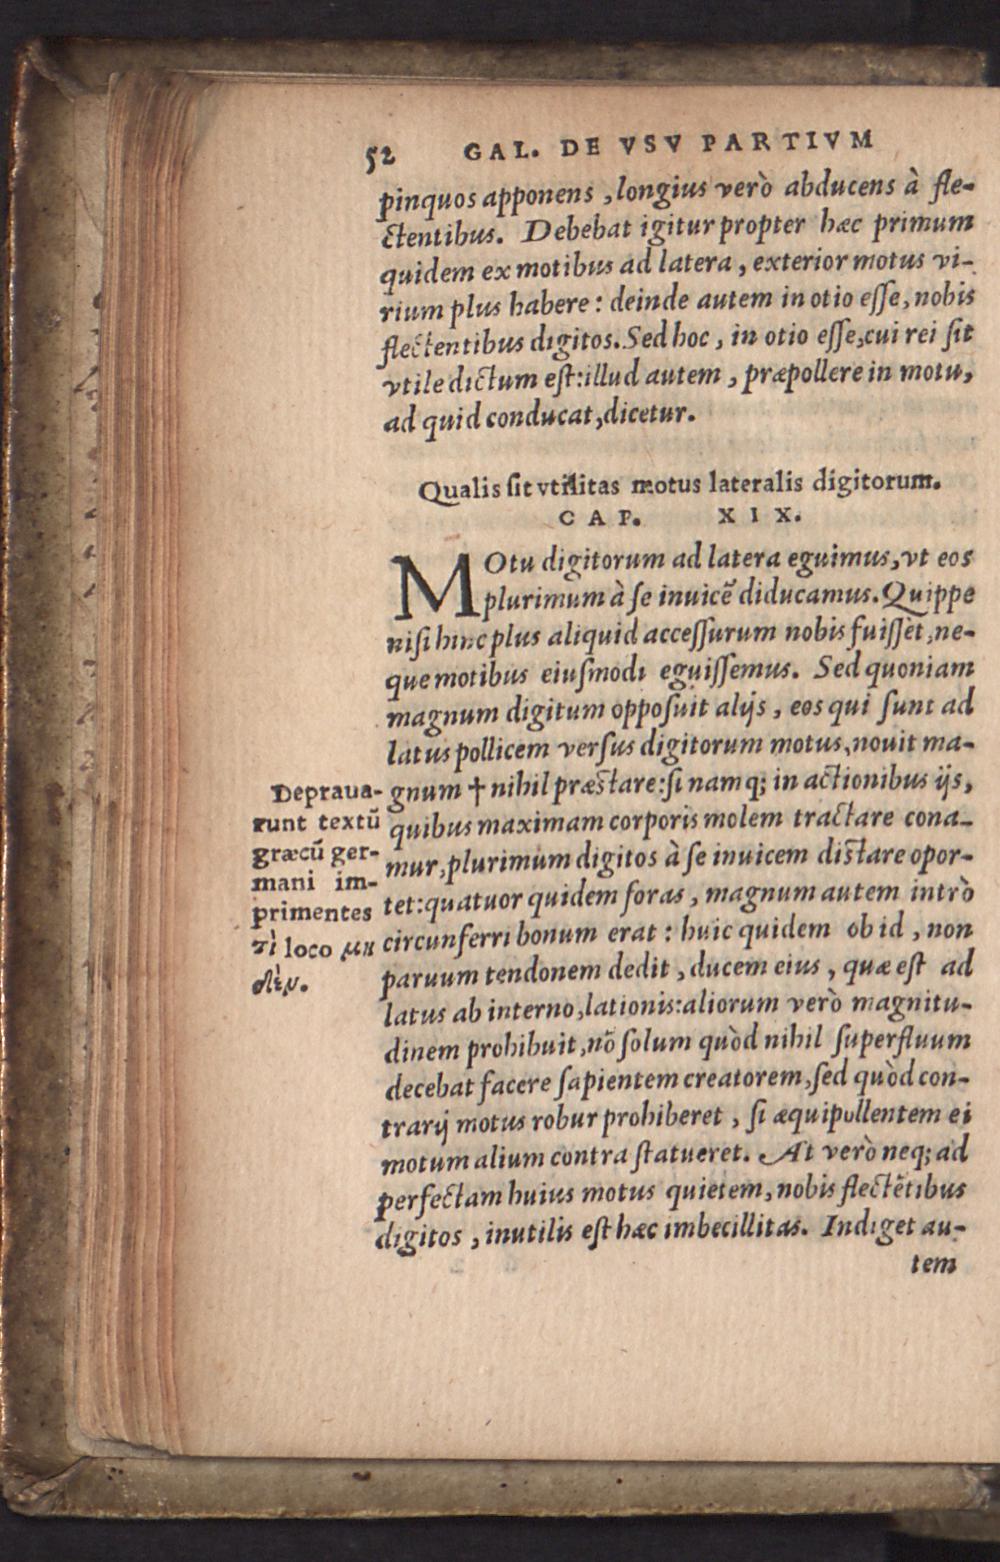 52 GAL. DE VSV PARTIVM
pinquos apponens, longius verò abducens à fle-
ctentibus. Debebat igitur propter hæc primum
quidem ex motibus ad latera, exterior motus vi-
rium plus habere: deinde autem in otio eſſe, nobis
flectentibus digitos. Sed hoc, in otio eſſe, cui rei ſit
vtile dictum eſt: illud autem, præpollere in motu,
ad quid conducat, dicetur.
Qualis ſit vtilitas motus lateralis digitorum.
CAP. XIX.
MOtu digitorum ad latera eguimus, vt eos
plurimum à ſe inuicē diducamus. Quippe
niſi hinc plus aliquid acceſſurum nobis fuiſſet, ne-
que motibus eiuſmodi eguiſſemus. Sed quoniam
magnum digitum oppoſuit alijs, eos qui ſunt ad
latus pollicem verſus digitorum motus, nouit ma-
gnum † nihil præſtare: ſi namq; in actionibus ijs,
quibus maximam corporis molem tractare cona-
mur, plurimum digitos à ſe inuicem diſtare opor-
tet: quatuor quidem foras, magnum autem intrò
circunferri bonum erat: huic quidem ob id, non
paruum tendonem dedit, ducem eius, quæ eſt ad
latus ab interno, lationis: aliorum verò magnitu-
dinem prohibuit, nō ſolum quòd nihil ſuperfluum
decebat facere ſapientem creatorem, ſed quòd con-
trarij motus robur prohiberet, ſi æquipollentem ei
motum alium contra ſtatueret. At verò neq; ad
perfectam huius motus quietem, nobis flectētibus
digitos, inutilis eſt hæc imbecillitas. Indiget au-
tem
Deprava-
runt textū
græcū ger-
mani im-
primentes
τὶ loco μη
δὲν.